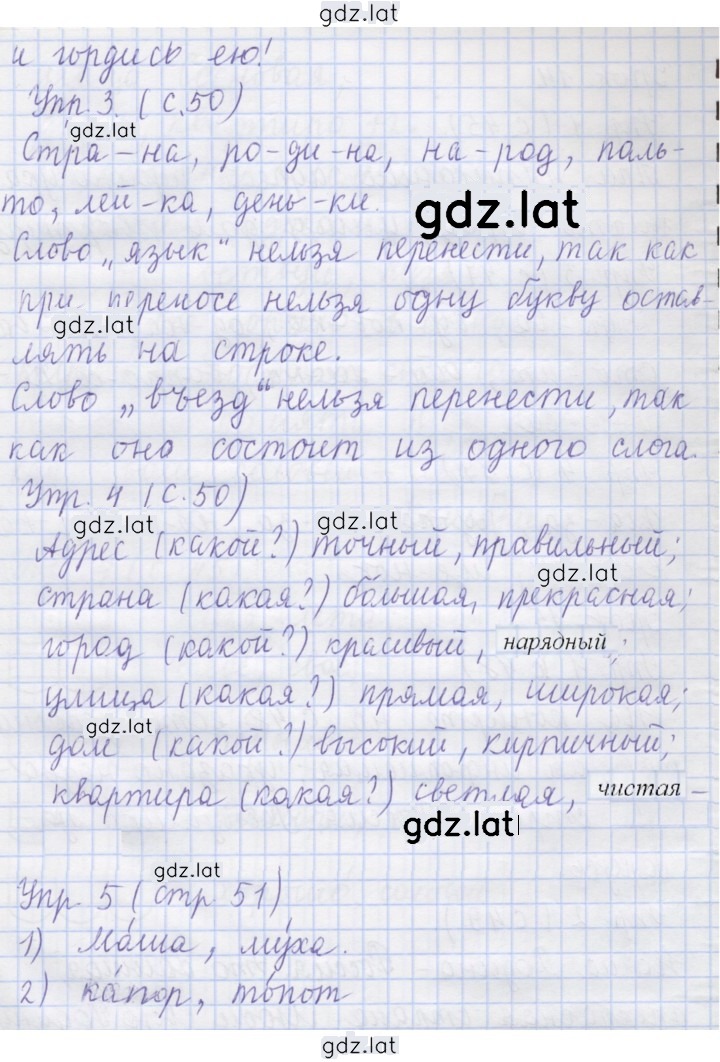 gdz.lat
и гордись ею!
Упр. 3. (с. 50)
gdz.lat
Стра-на, ро-ди-на, на-род, паль-
то, лей-ка, день-ки.
gdz.lat
Слово „язык“ нельзя перенести, так как
при переносе нельзя одну букву остав-
gdz.lat
лять на строке.
Слово „въезд“ нельзя перенести, так
как оно состоит из одного слога.
Упр. 4 (с. 50)
gdz.lat
gdz.lat
Адрес (какой?) точный, правильный;
gdz.lat
страна (какая?) большая, прекрасная;
город (какой?) красивый, нарядный;
улица (какая?) прямая, широкая;
gdz.lat
дом (какой?) высокий, кирпичный;
квартира (какая?) светлая, чистая –
gdz.lat
gdz.lat
Упр. 5 (стр. 51)
1) Ма́ша, му́ха.
2) ка́пор, то́пот
gdz.lat